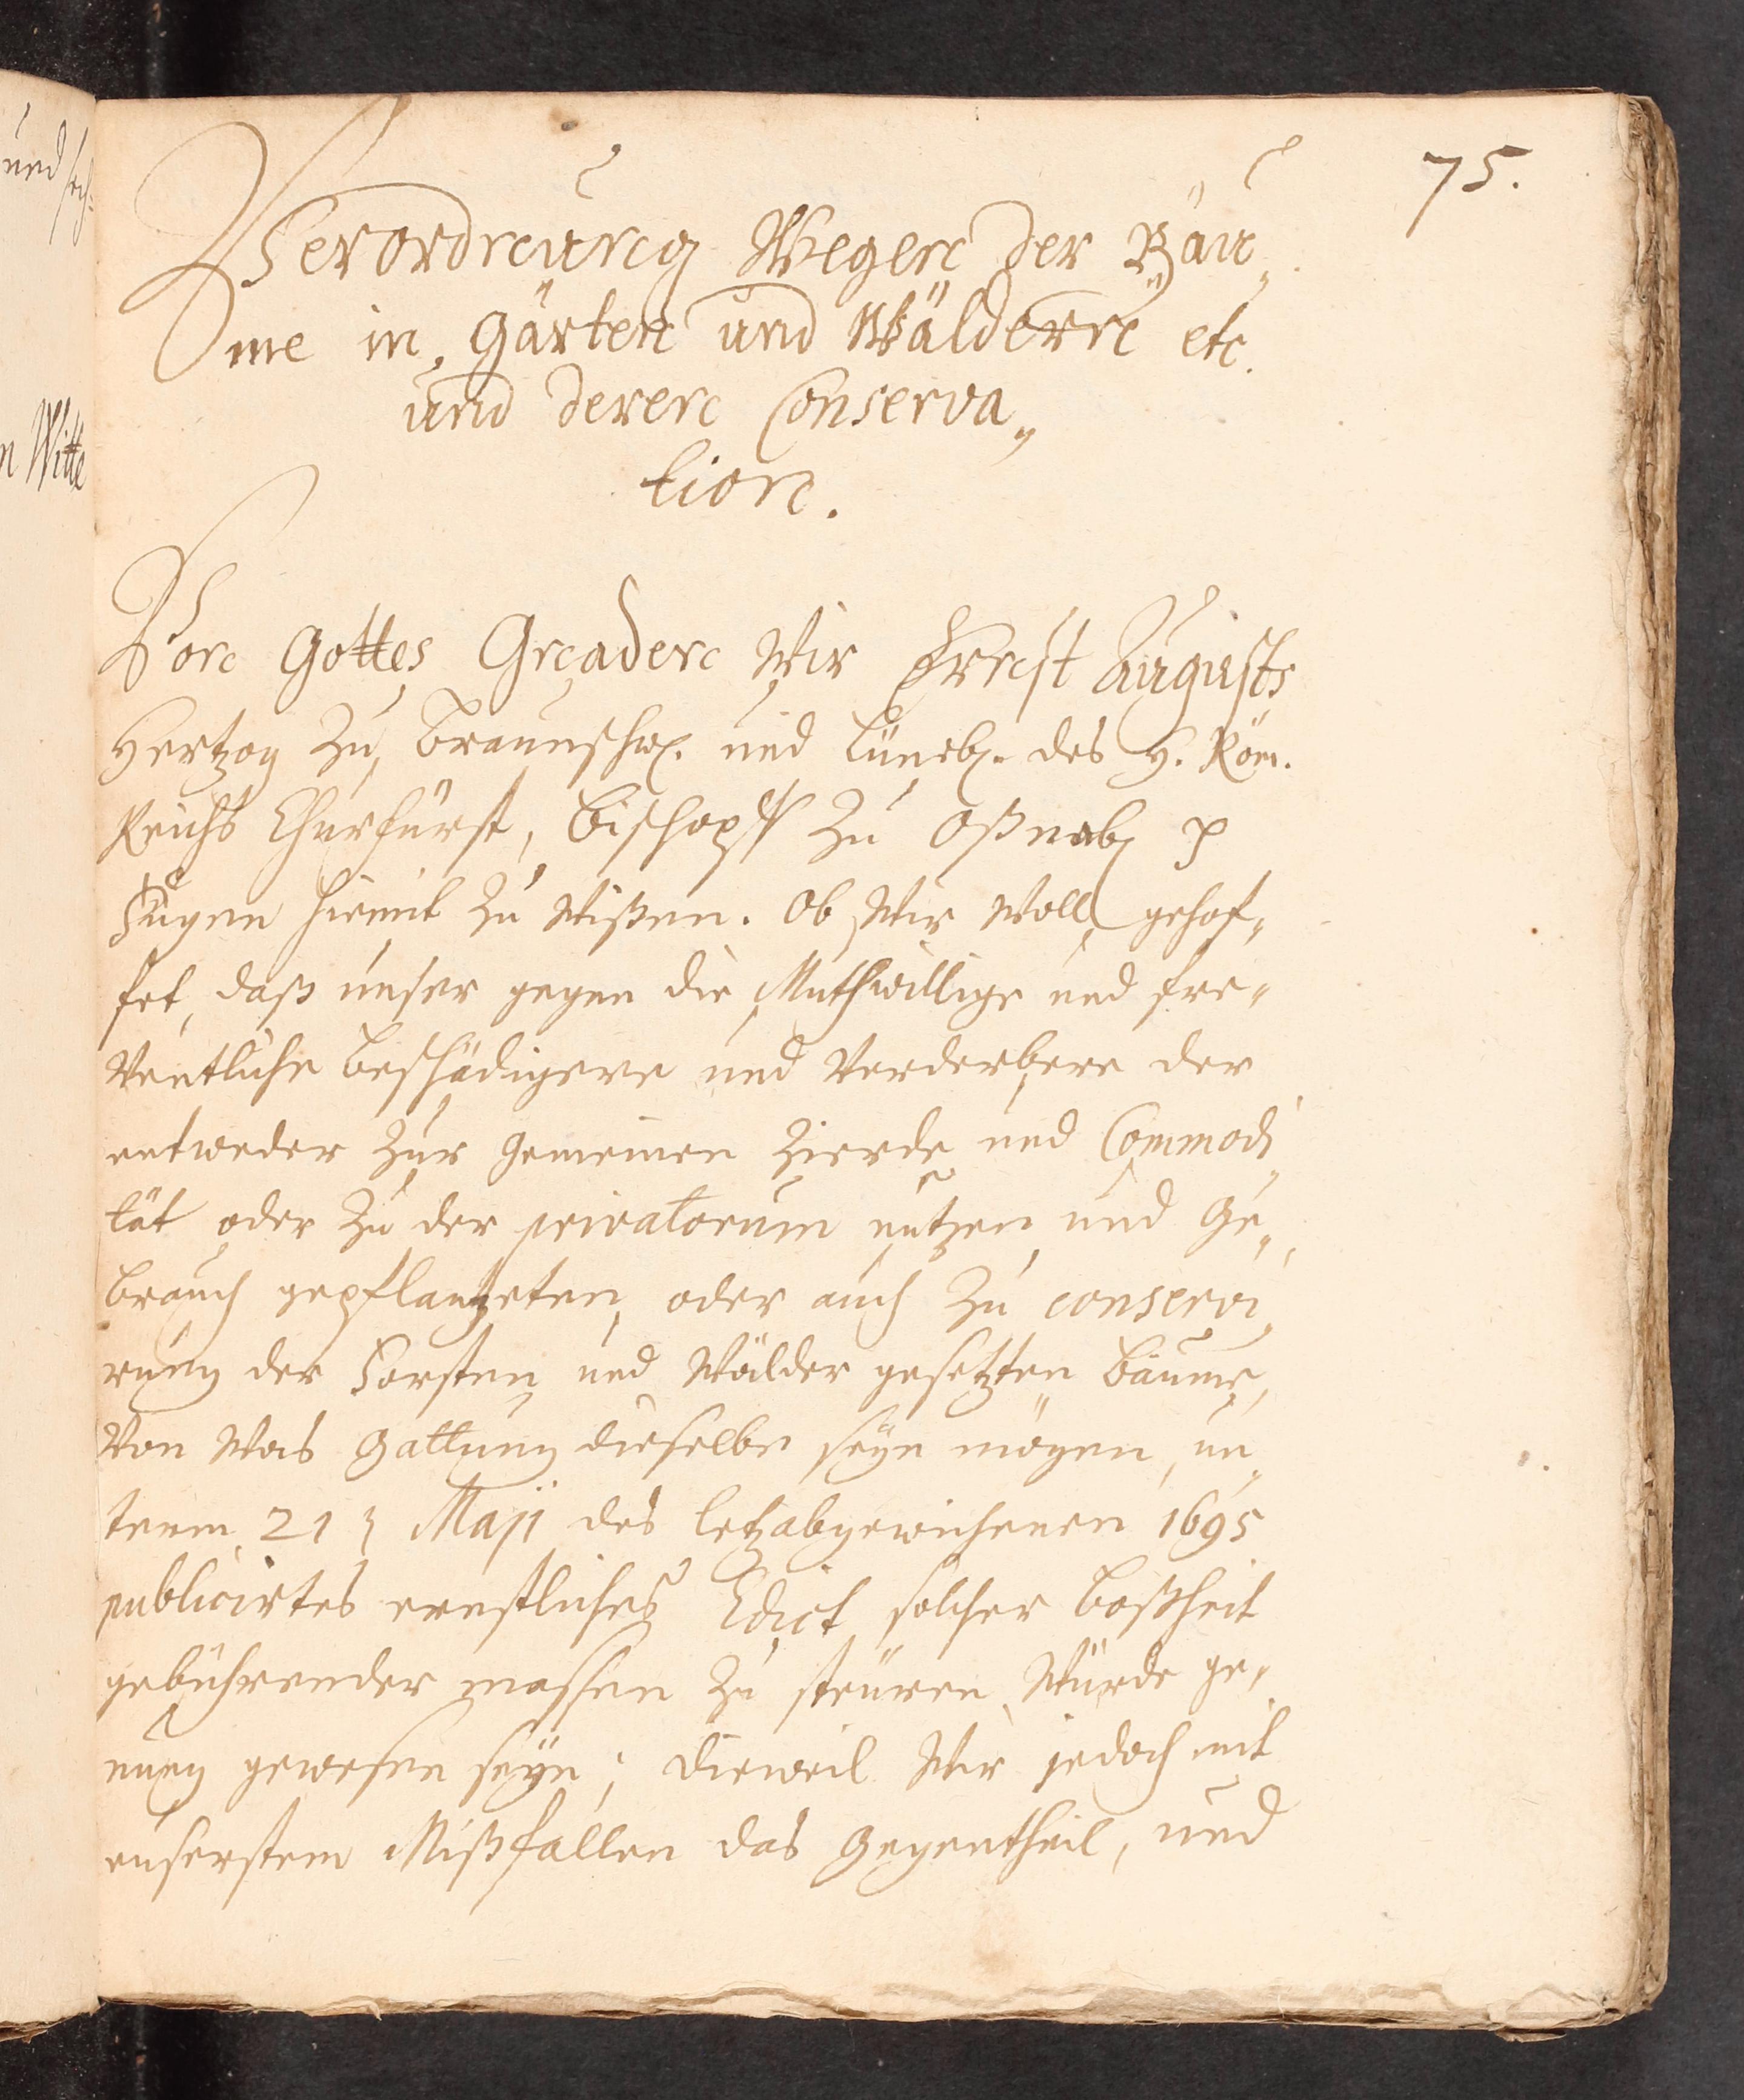 75.
Verordnung Wegen der Bäu„
me in Gärten und Wäldern etc.
und deren Conserva„
tion.
Von Gottes Gnaden Wir Ernst Augusts
Hertzog Zu Braunschw. und Lüneb. des H. Röm.
Reichs Churfürst, Bischopff Zu Oßnab. p
Fügen hiemit Zu Wißen. Ob Wir Woll gehof„
fet, daß unser gegen die Muthwillige und fre„
Ventliche Beschädigere und Verderbere der
entweder Zur Gemeinen Zierde und Commodi„
tät oder Zu der privatorum nutzen und Ge„
brauch gepflantzeten, oder auch Zu conservi„
rung der Forsten und Wälder gesetzten Bäume,
Von Was Gattung dieselbe seyn mögen, un„
term 21 Maji des letzabgewichenen 1695
publicirtes ernstliches Edict solcher Boßheit
gebührender massen Zu steüren Würde ge„
nung gewesen seyn; dieweil Wir jedoch mit
eusserstem Mißfallen das Gegentheil, und
und sech„
n Witte